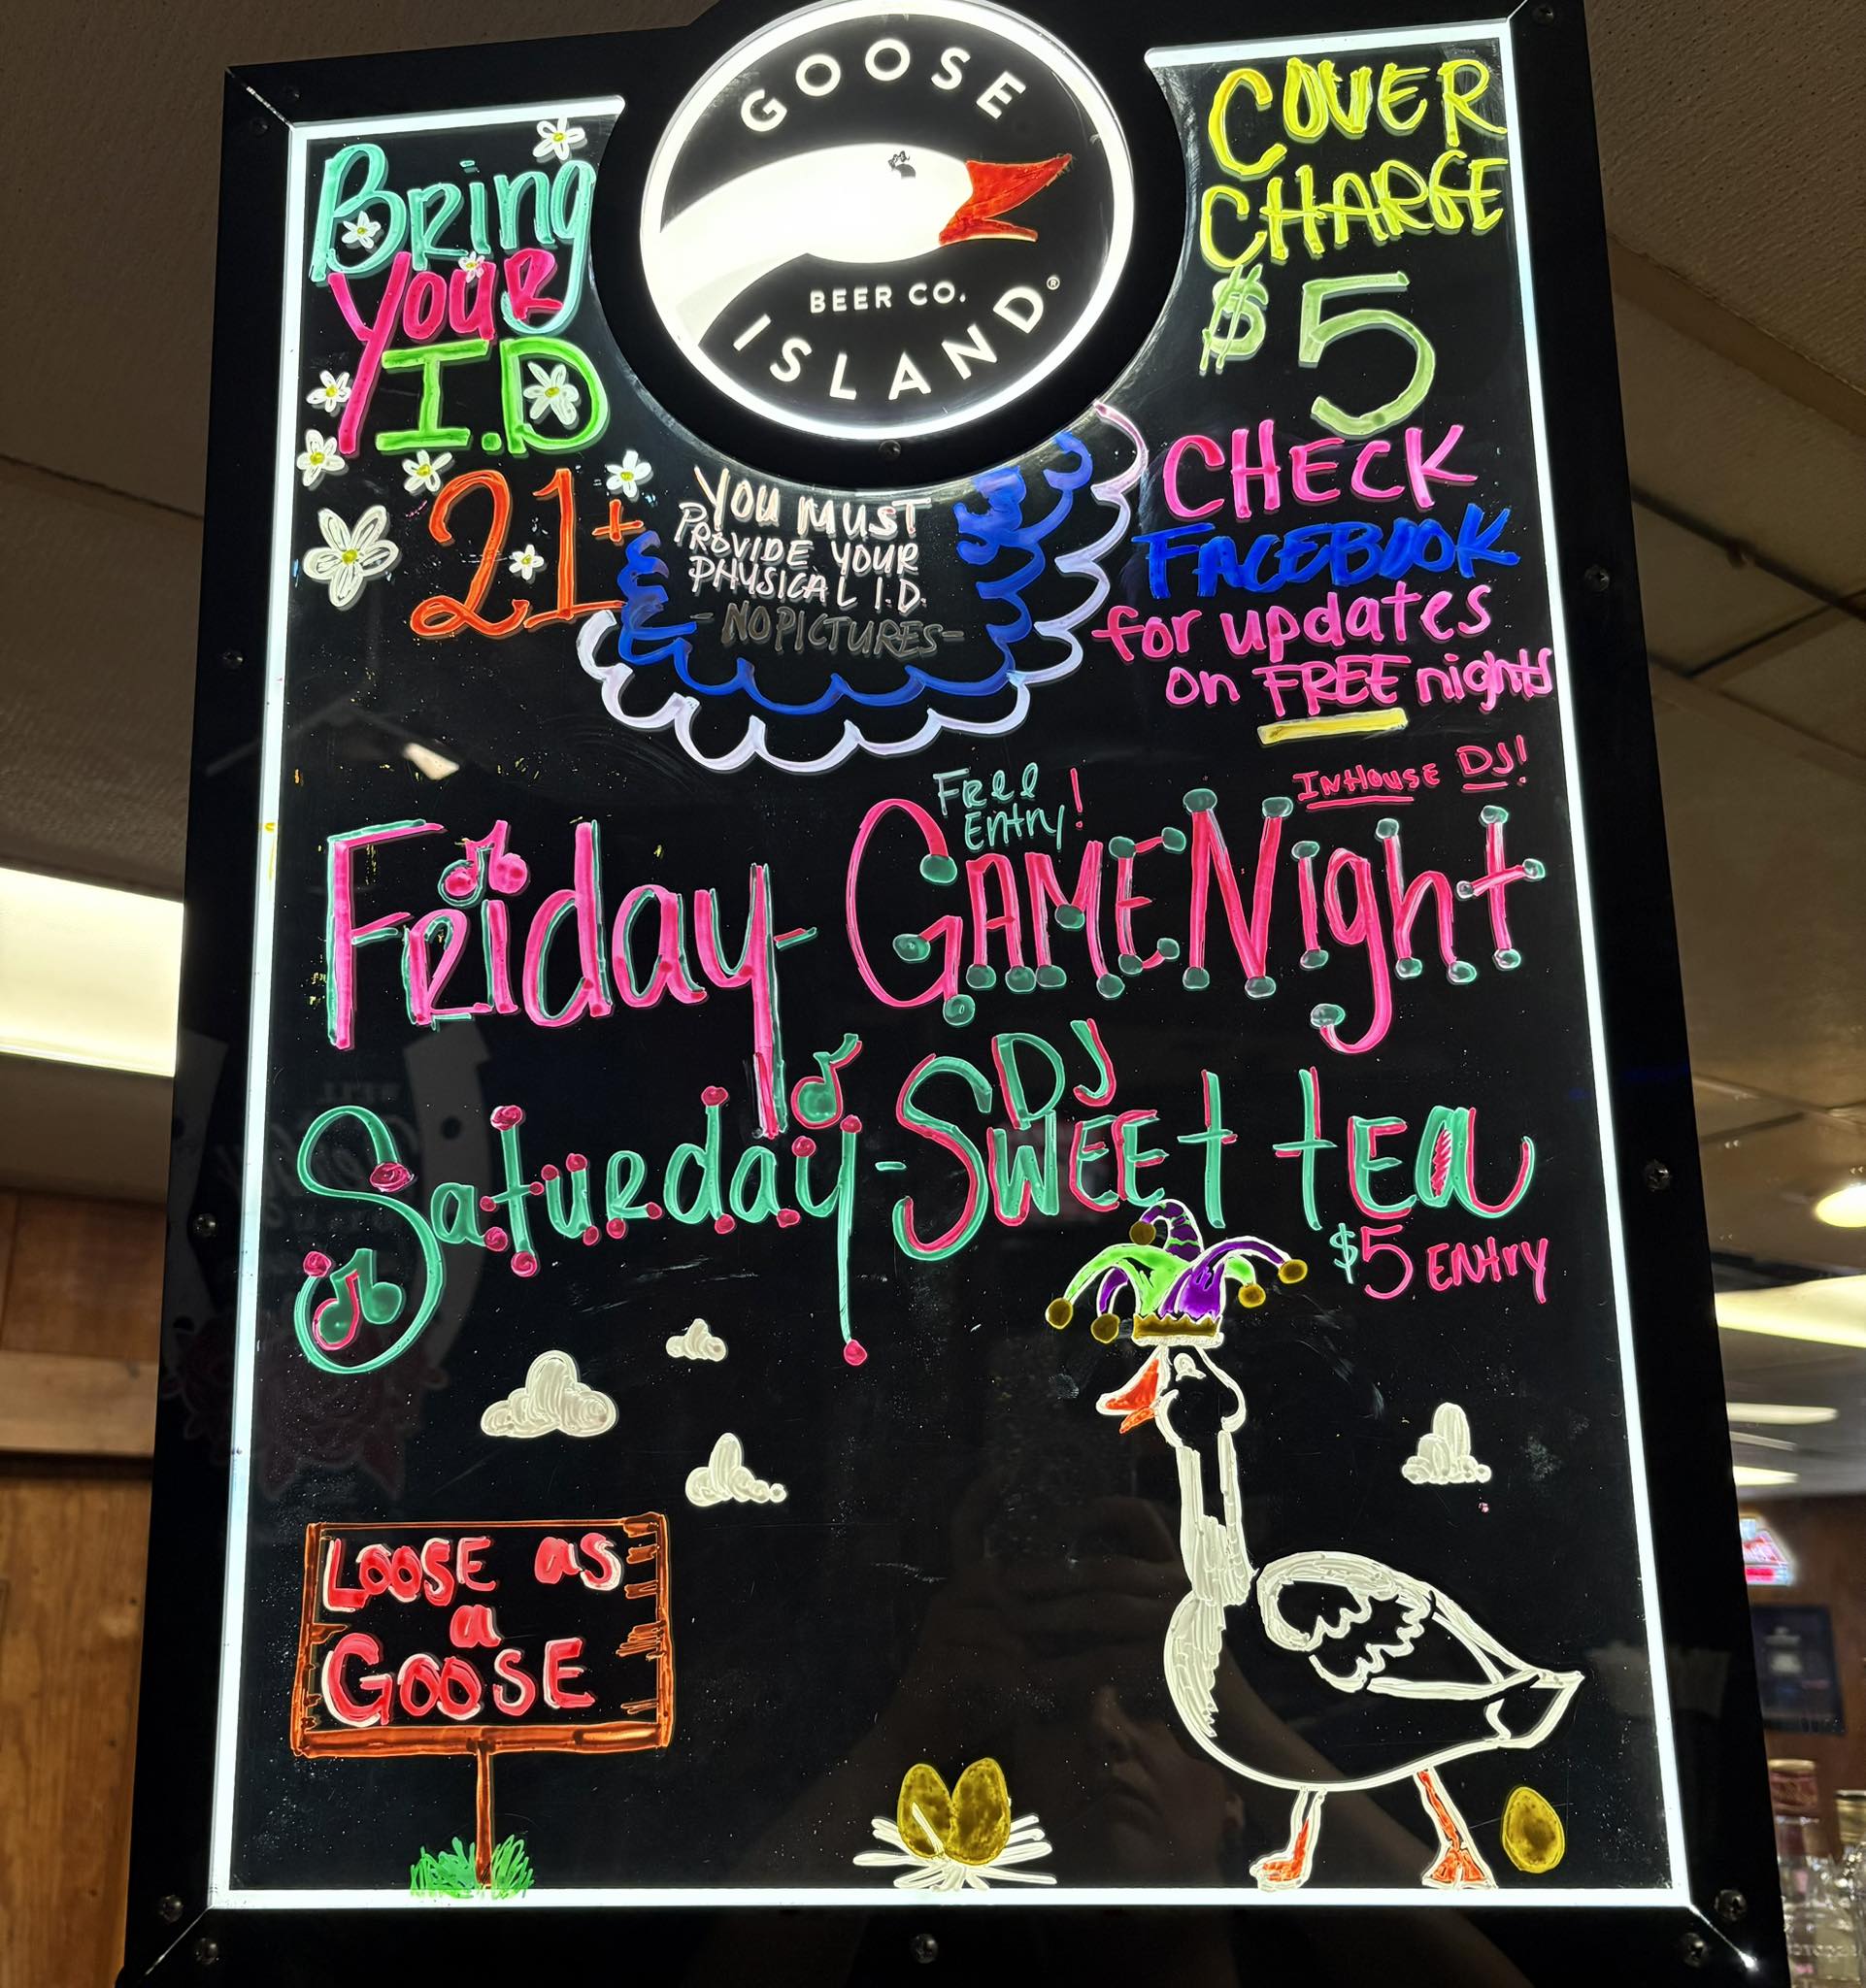 GOOSE
BEER CO.
ISLAND®
Bring
YOUR
I.D
21+
YOU MUST
PROVIDE YOUR
PHYSICAL I.D.
-NO PICTURES-
COVER
CHARGE
$5
CHECK
FACEBOOK
for updates
on FREE nights
Free
Entry!
INHOUSE DJ!
Friday- GAME Night
DJ
Saturday- SWEET tEa
$5 ENtry
LOOSE as
a
GOOSE